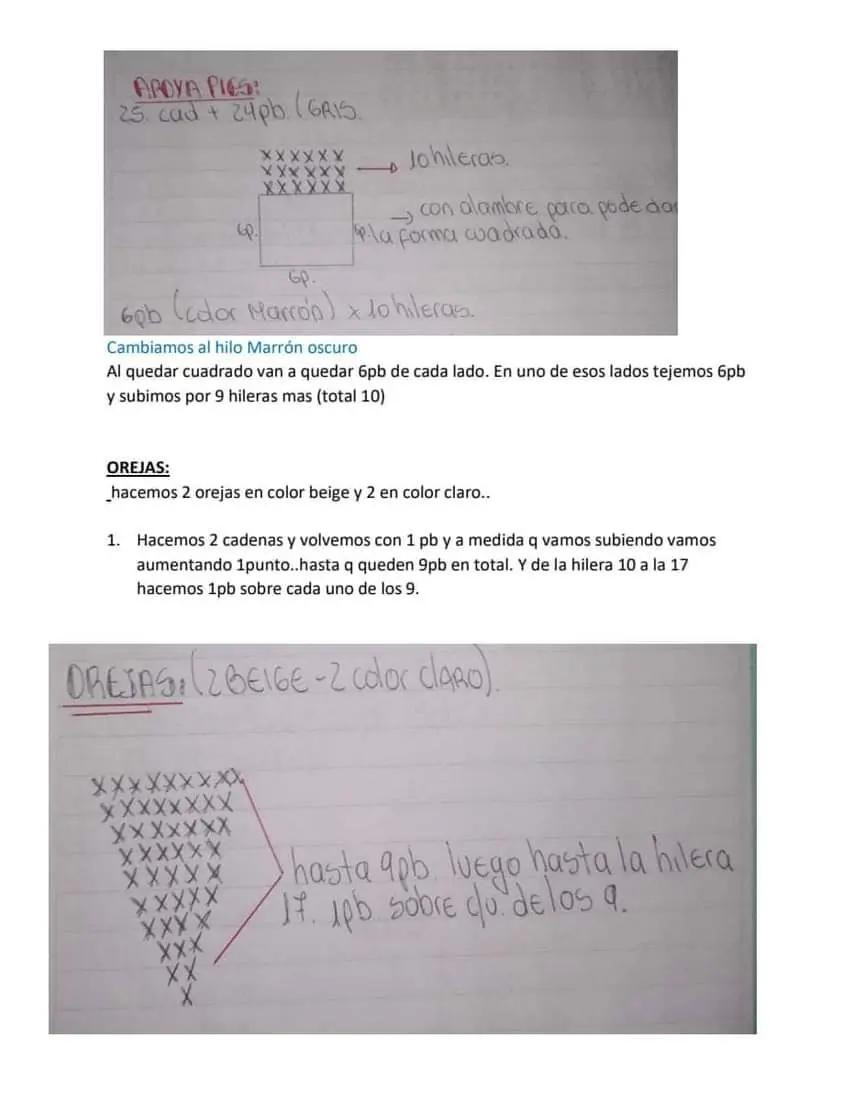 APOYA PIES:
25. cad + 24pb. (GRIS.
XXXXXX
XXXXXX
XXXXXX
10 hileras.
con alambre para pode dar
la forma cuadrada.
6p.
6p.
6p.
6pb (color Marrón) x 10 hileras.
Cambiamos al hilo Marrón oscuro
Al quedar cuadrado van a quedar 6pb de cada lado. En uno de esos lados tejemos 6pb
y subimos por 9 hileras mas (total 10)
OREJAS:
_hacemos 2 orejas en color beige y 2 en color claro..
1. Hacemos 2 cadenas y volvemos con 1 pb y a medida q vamos subiendo vamos
aumentando 1punto..hasta q queden 9pb en total. Y de la hilera 10 a la 17
hacemos 1pb sobre cada uno de los 9.
OREJAS: (2 BEIGE - 2 color clARO).
XXXXXXXXX
XXXXXXXX
XXXXXXX
XXXXXX
XXXXX
XXXXX
XXXX
XXX
XX
X
hasta 9pb. luego hasta la hilera
17. 1pb. sobre c/u. de los 9.